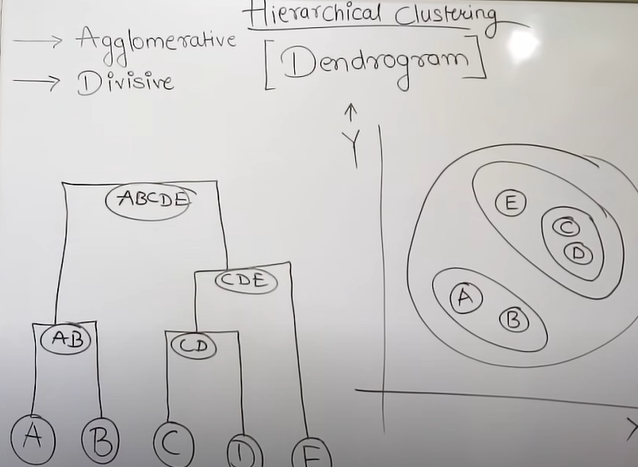 Hierarchical Clustering
→ Agglomerative
→ Divisive
[Dendrogram]
↑
Y
ABCDE
E
C
D
CDE
A
B
AB
CD
A
B
C
D
E
X